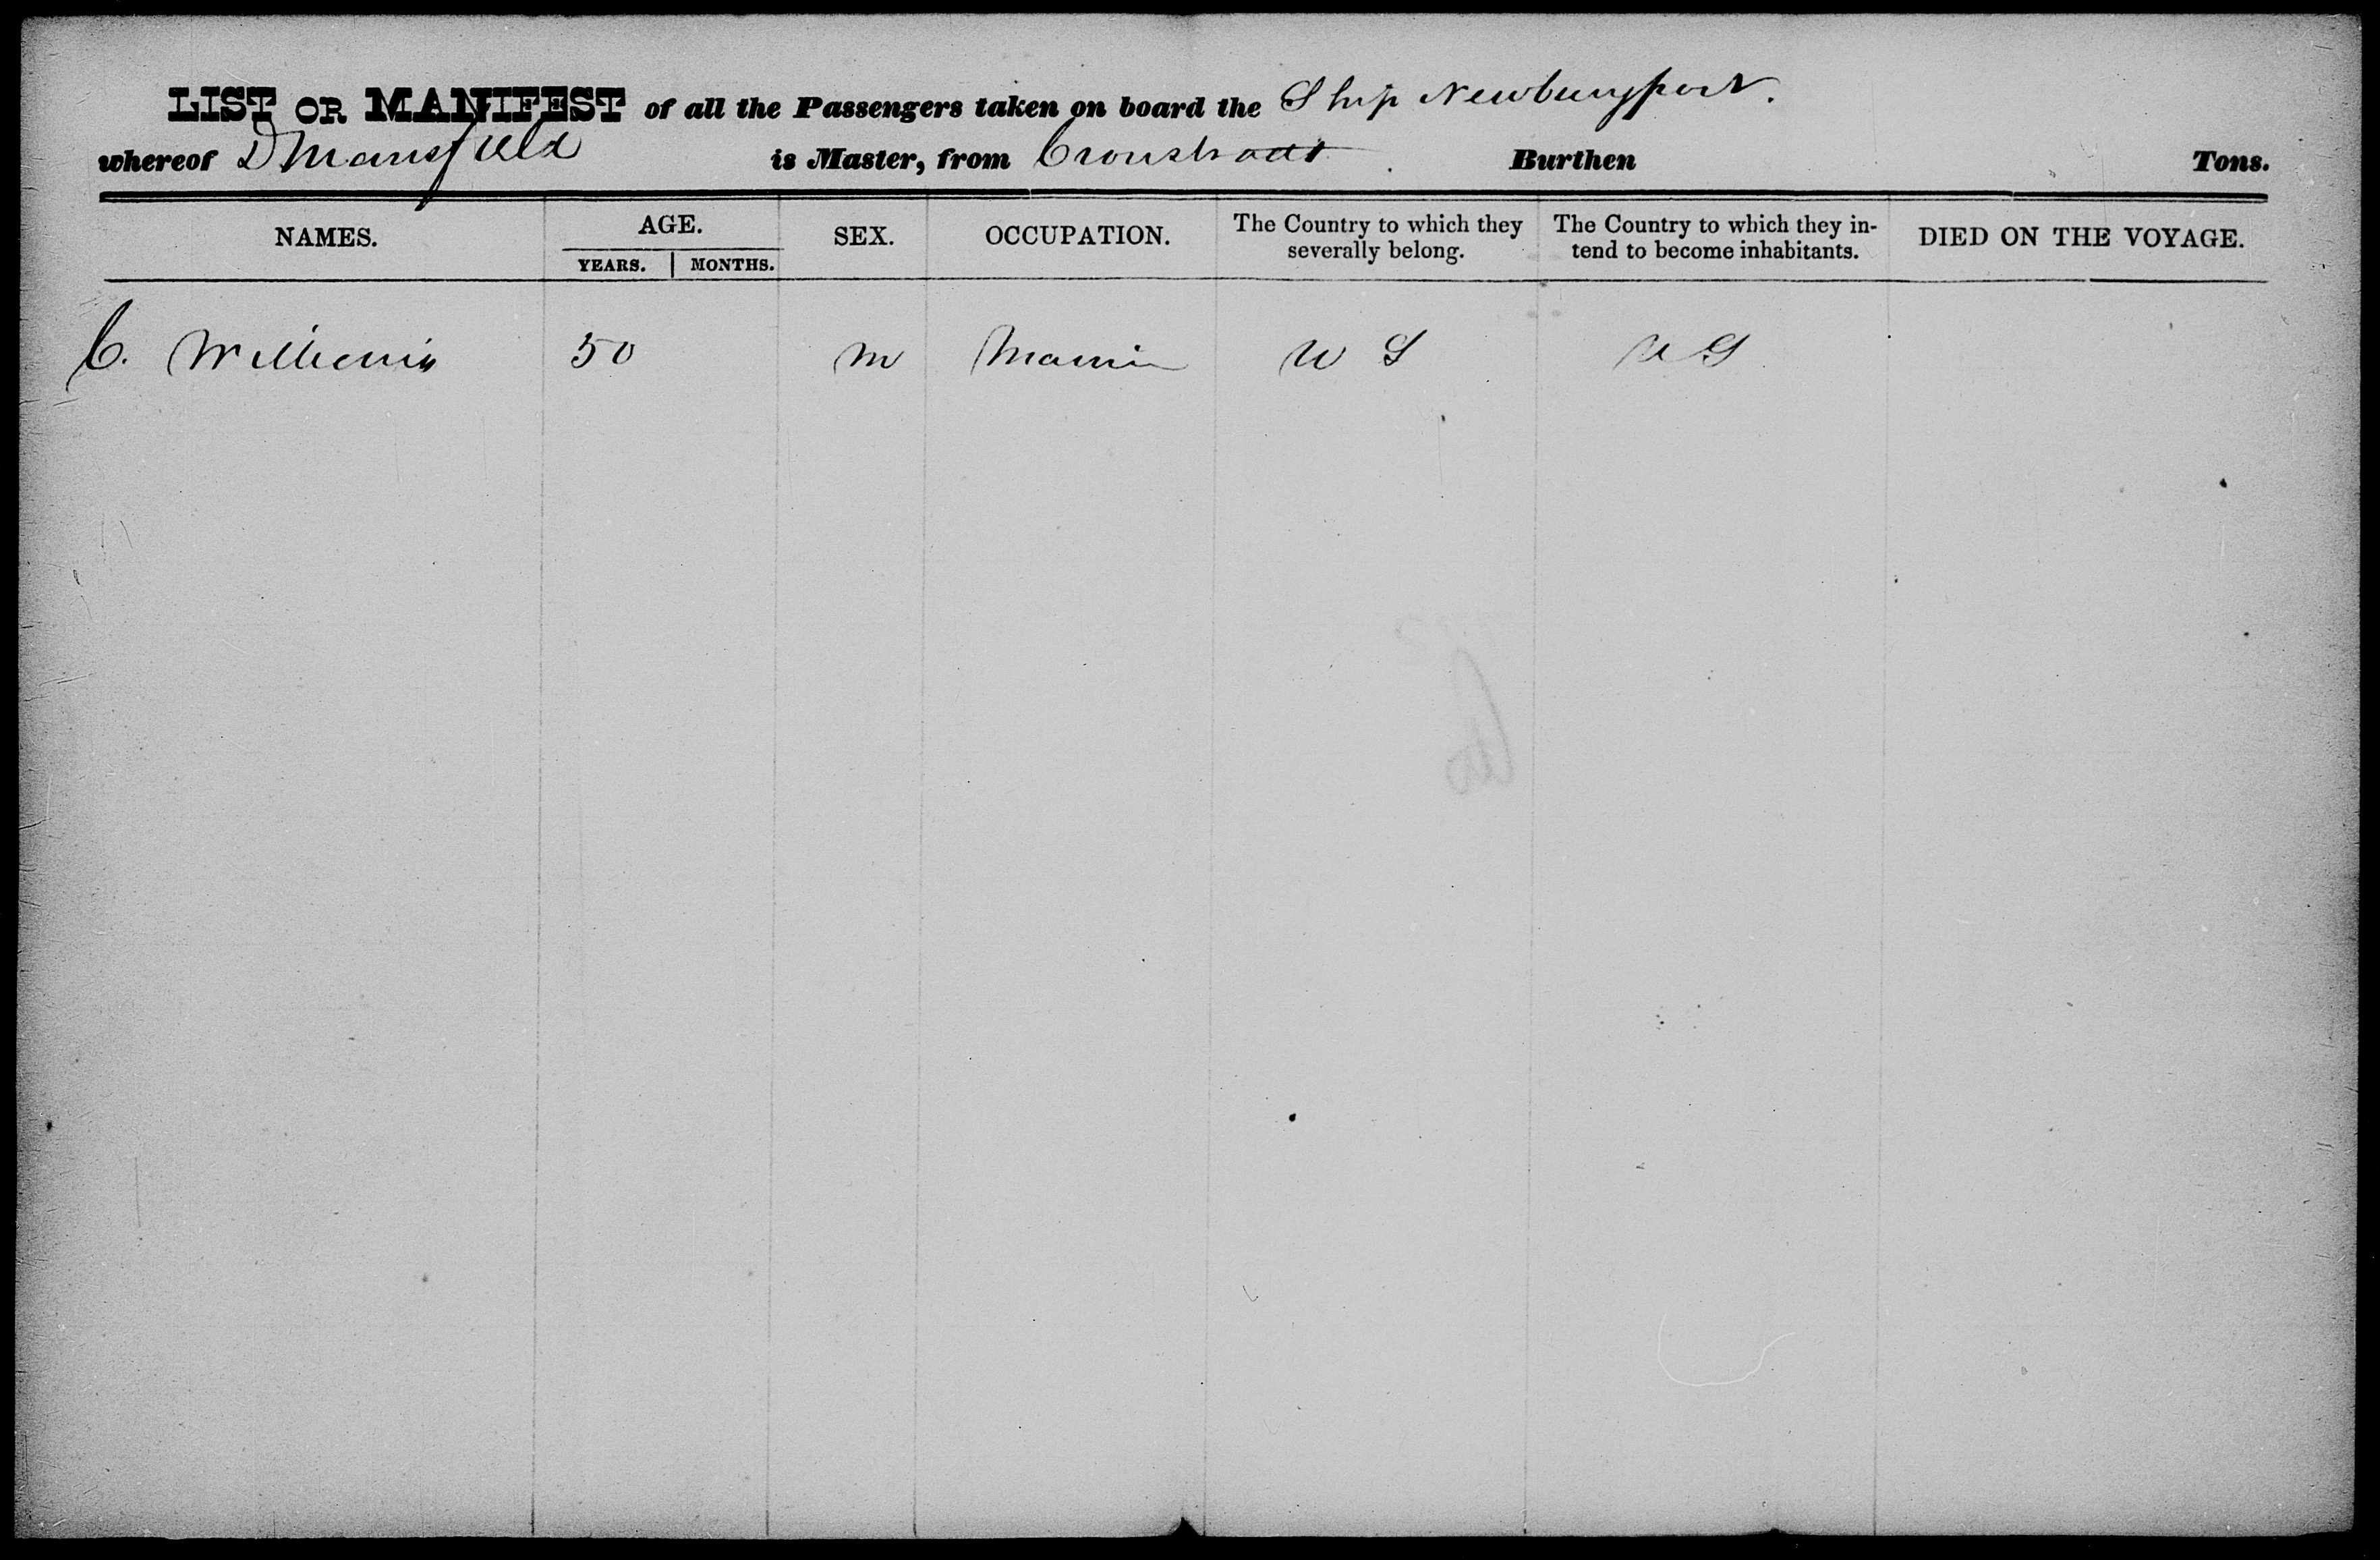 LIST OR MANIFEST of all the Passengers taken on board the Ship Newburyport.
whereof D Mansfield is Master, from Cronstradt Burthen Tons.
NAMES. AGE. SEX. OCCUPATION. The Country to which they severally belong. The Country to which they intend to become inhabitants. DIED ON THE VOYAGE.
YEARS. MONTHS.
C. Williams 50 m U S U S